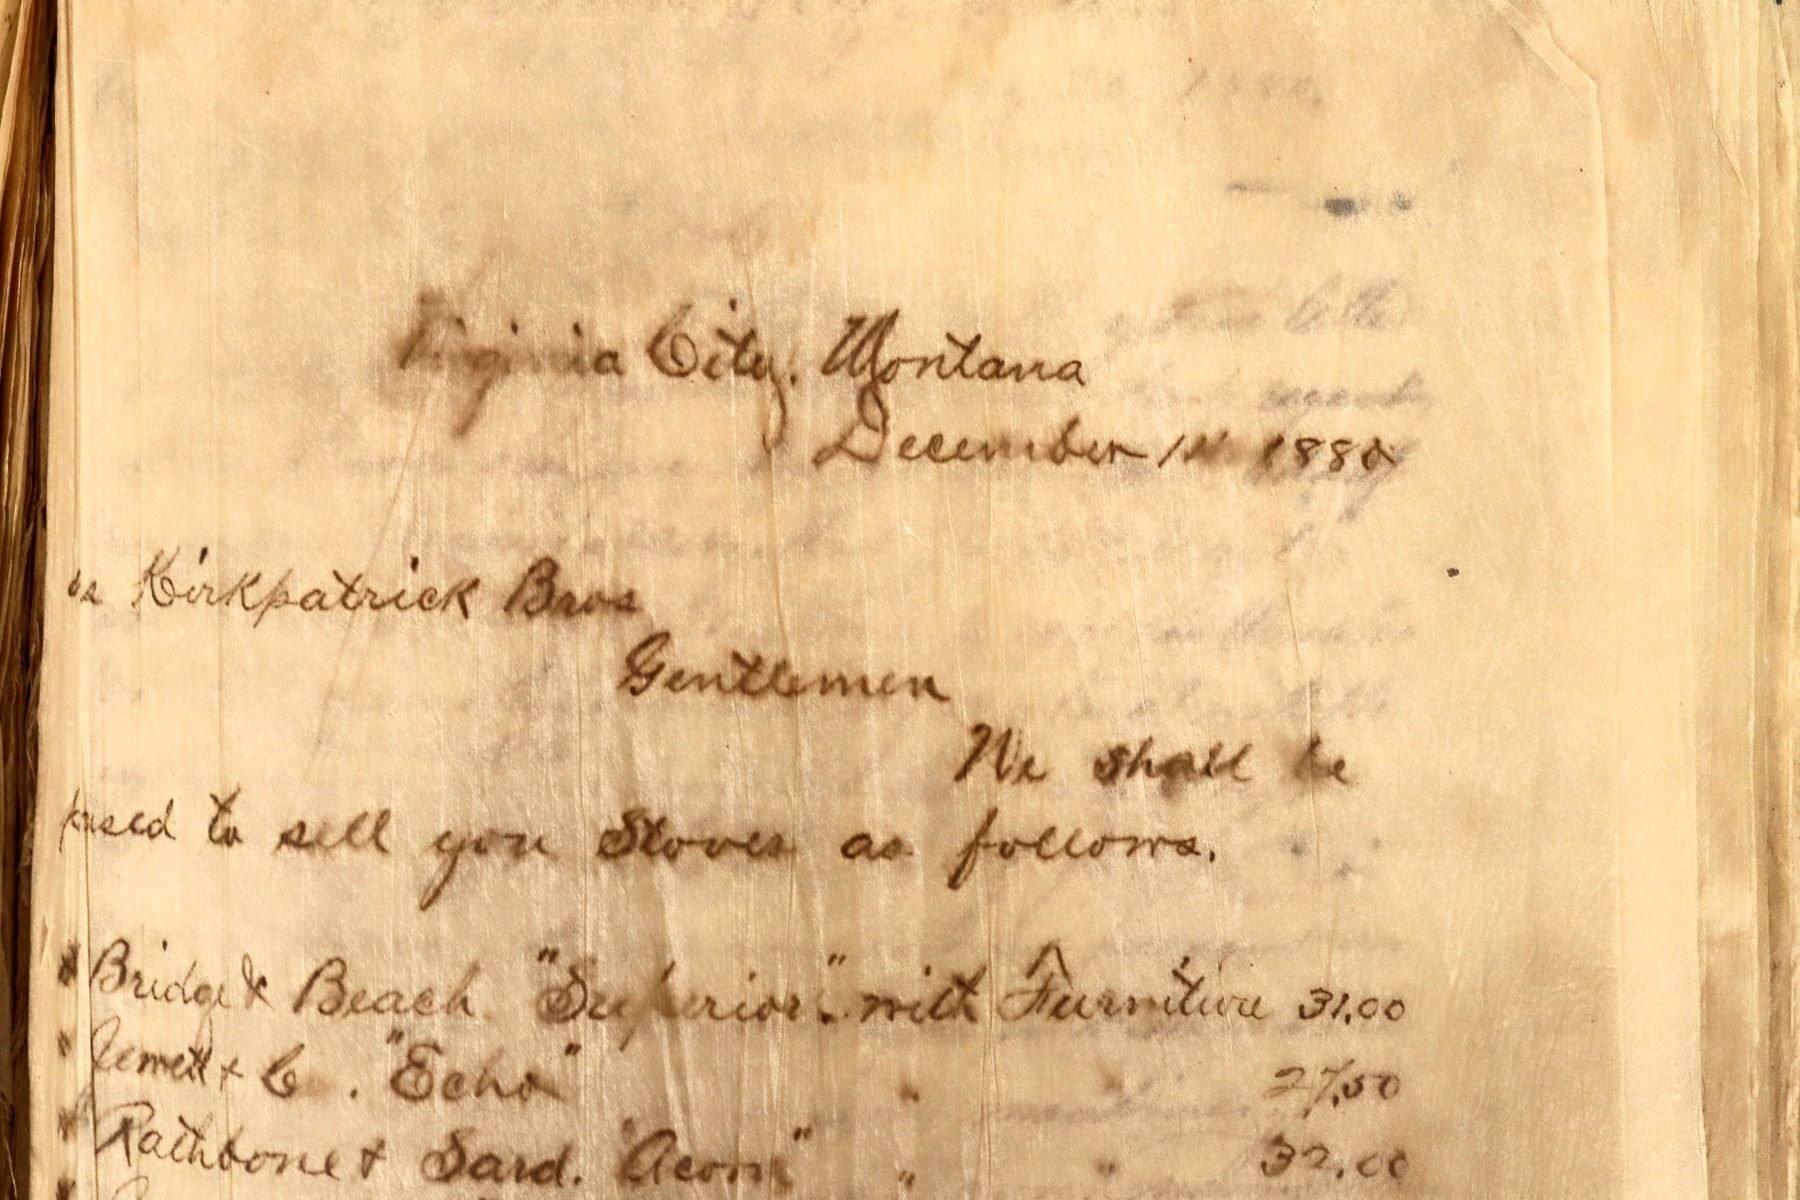 Virginia City, Montana
December 1st 1880
Kirkpatrick Bros
Gentlemen
We shall be
to sell you Stoves as follows.
Bridge & Beach "Superior" with Furniture 31.00
Jewett & C . "Echo" " " 27.50
Rathbone & Sard. "Acorn" " " 32.00